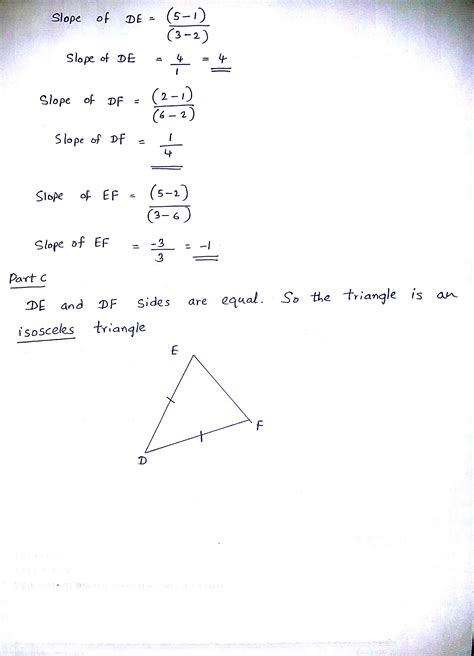 Slope of DE = (5-1)/(3-2)
Slope of DE = 4/1 = 4
Slope of DF = (2-1)/(6-2)
Slope of DF = 1/4
Slope of EF = (5-2)/(3-6)
Slope of EF = -3/3 = -1
Part C
DE and DF sides are equal. So the triangle is an
isosceles triangle
E
F
D